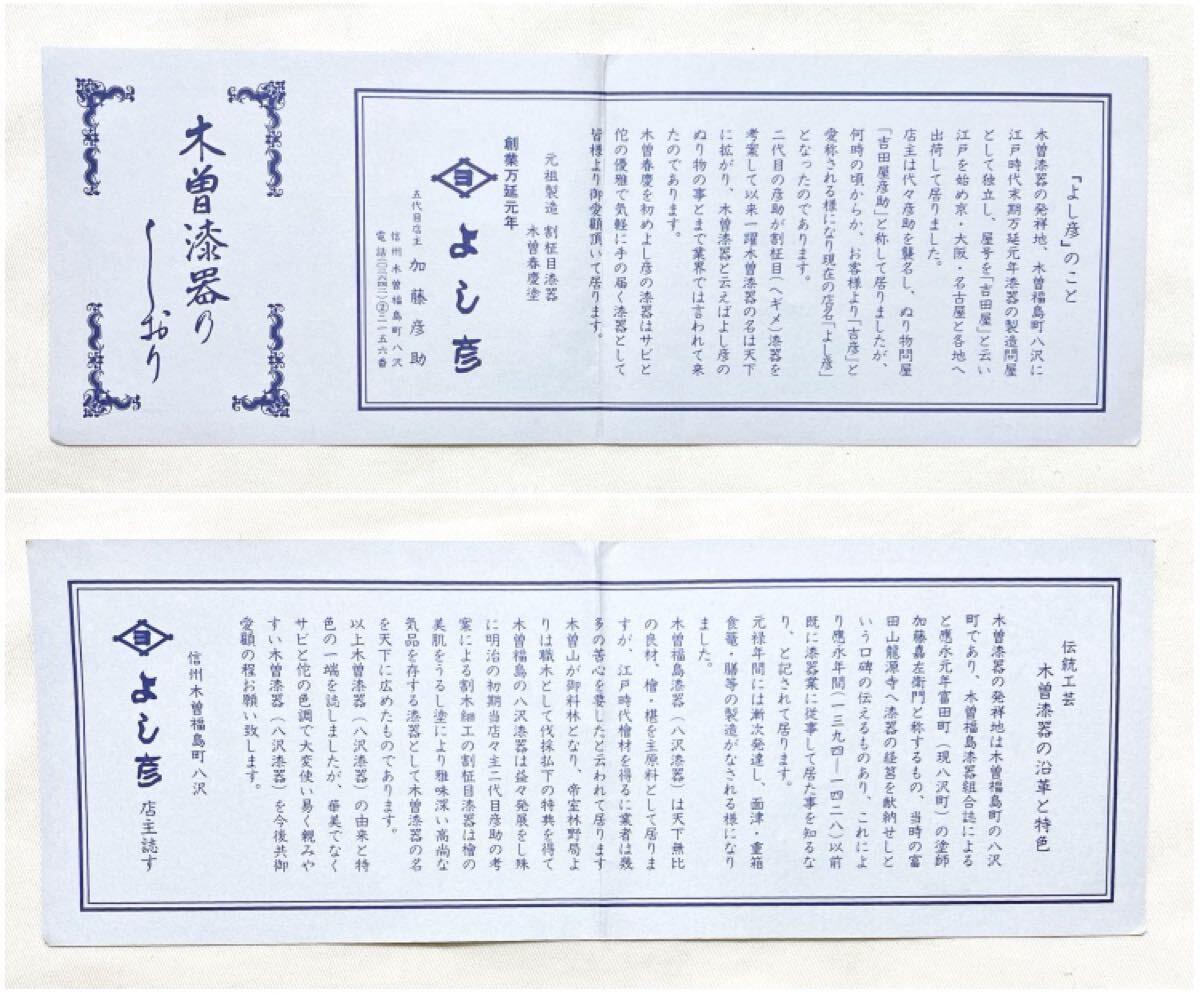 「よし彦」のこと
木曽漆器の発祥地、木曽福島町八沢に
江戸時代末期万延元年漆器の製造問屋
として独立し、屋号を「吉田屋」と云い
江戸を始め京・大阪・名古屋と各地へ
出荷して居りました。
店主は代々彦助を襲名し、ぬり物問屋
「吉田屋彦助」と称して居りましたが、
何時の頃からか、お客様より「吉彦」と
愛称される様になり現在の店名「よし彦」
となったのであります。
二代目の彦助が割柾目(ヘギメ)漆器を
考案して以来一躍木曽漆器の名は天下
に拡がり、木曽漆器と云えばよし彦の
ぬり物の事とまで業界では言われて来
たのであります。
木曽春慶を初めよし彦の漆器はサビと
侘の優雅で気軽に手の届く漆器として
皆様より御愛顧頂いて居ります。
元祖製造 割柾目漆器
木曽春慶塗
創業万延元年
ヨ よし彦
五代目店主 加藤彦助
信州木曽福島町八沢
電話(〇二六四二)②二一五六番
木曽漆器の
しおり
伝統工芸
木曽漆器の沿革と特色
木曽漆器の発祥地は木曽福島町の八沢
町であり、木曽福島漆器組合誌による
と應永元年富田町(現八沢町)の塗師
加藤嘉左衛門と称するもの、当時の富
田山龍源寺へ漆器の経筥を献納せしと
いう口碑の伝えるものあり、これによ
り應永年間(一三九四―一四二八)以前
既に漆器業に従事して居た事を知るな
り、と記されて居ります。
元禄年間には漸次発達し、面津・重箱
食籠・膳等の製造がなされる様になり
ました。
木曽福島漆器(八沢漆器)は天下無比
の良材、檜・椹を主原料として居りま
すが、江戸時代檜材を得るに業者は幾
多の苦心を要したと云われて居ります
木曽山が御料林となり、帝室林野局よ
りは職木として伐採払下の特典を得て
木曽福島の八沢漆器は益々発展をし殊
に明治の初期当店々主二代目彦助の考
案による割木細工の割柾目漆器は檜の
美肌をうるし塗により雅味深い高尚な
気品を存する漆器として木曽漆器の名
を天下に広めたものであります。
以上木曽漆器(八沢漆器)の由来と特
色の一端を誌しましたが、華美でなく
サビと侘の色調で大変使い易く親みや
すい木曽漆器(八沢漆器)を今後共御
愛顧の程お願い致します。
信州木曽福島町八沢
ヨ よし彦 店主誌す